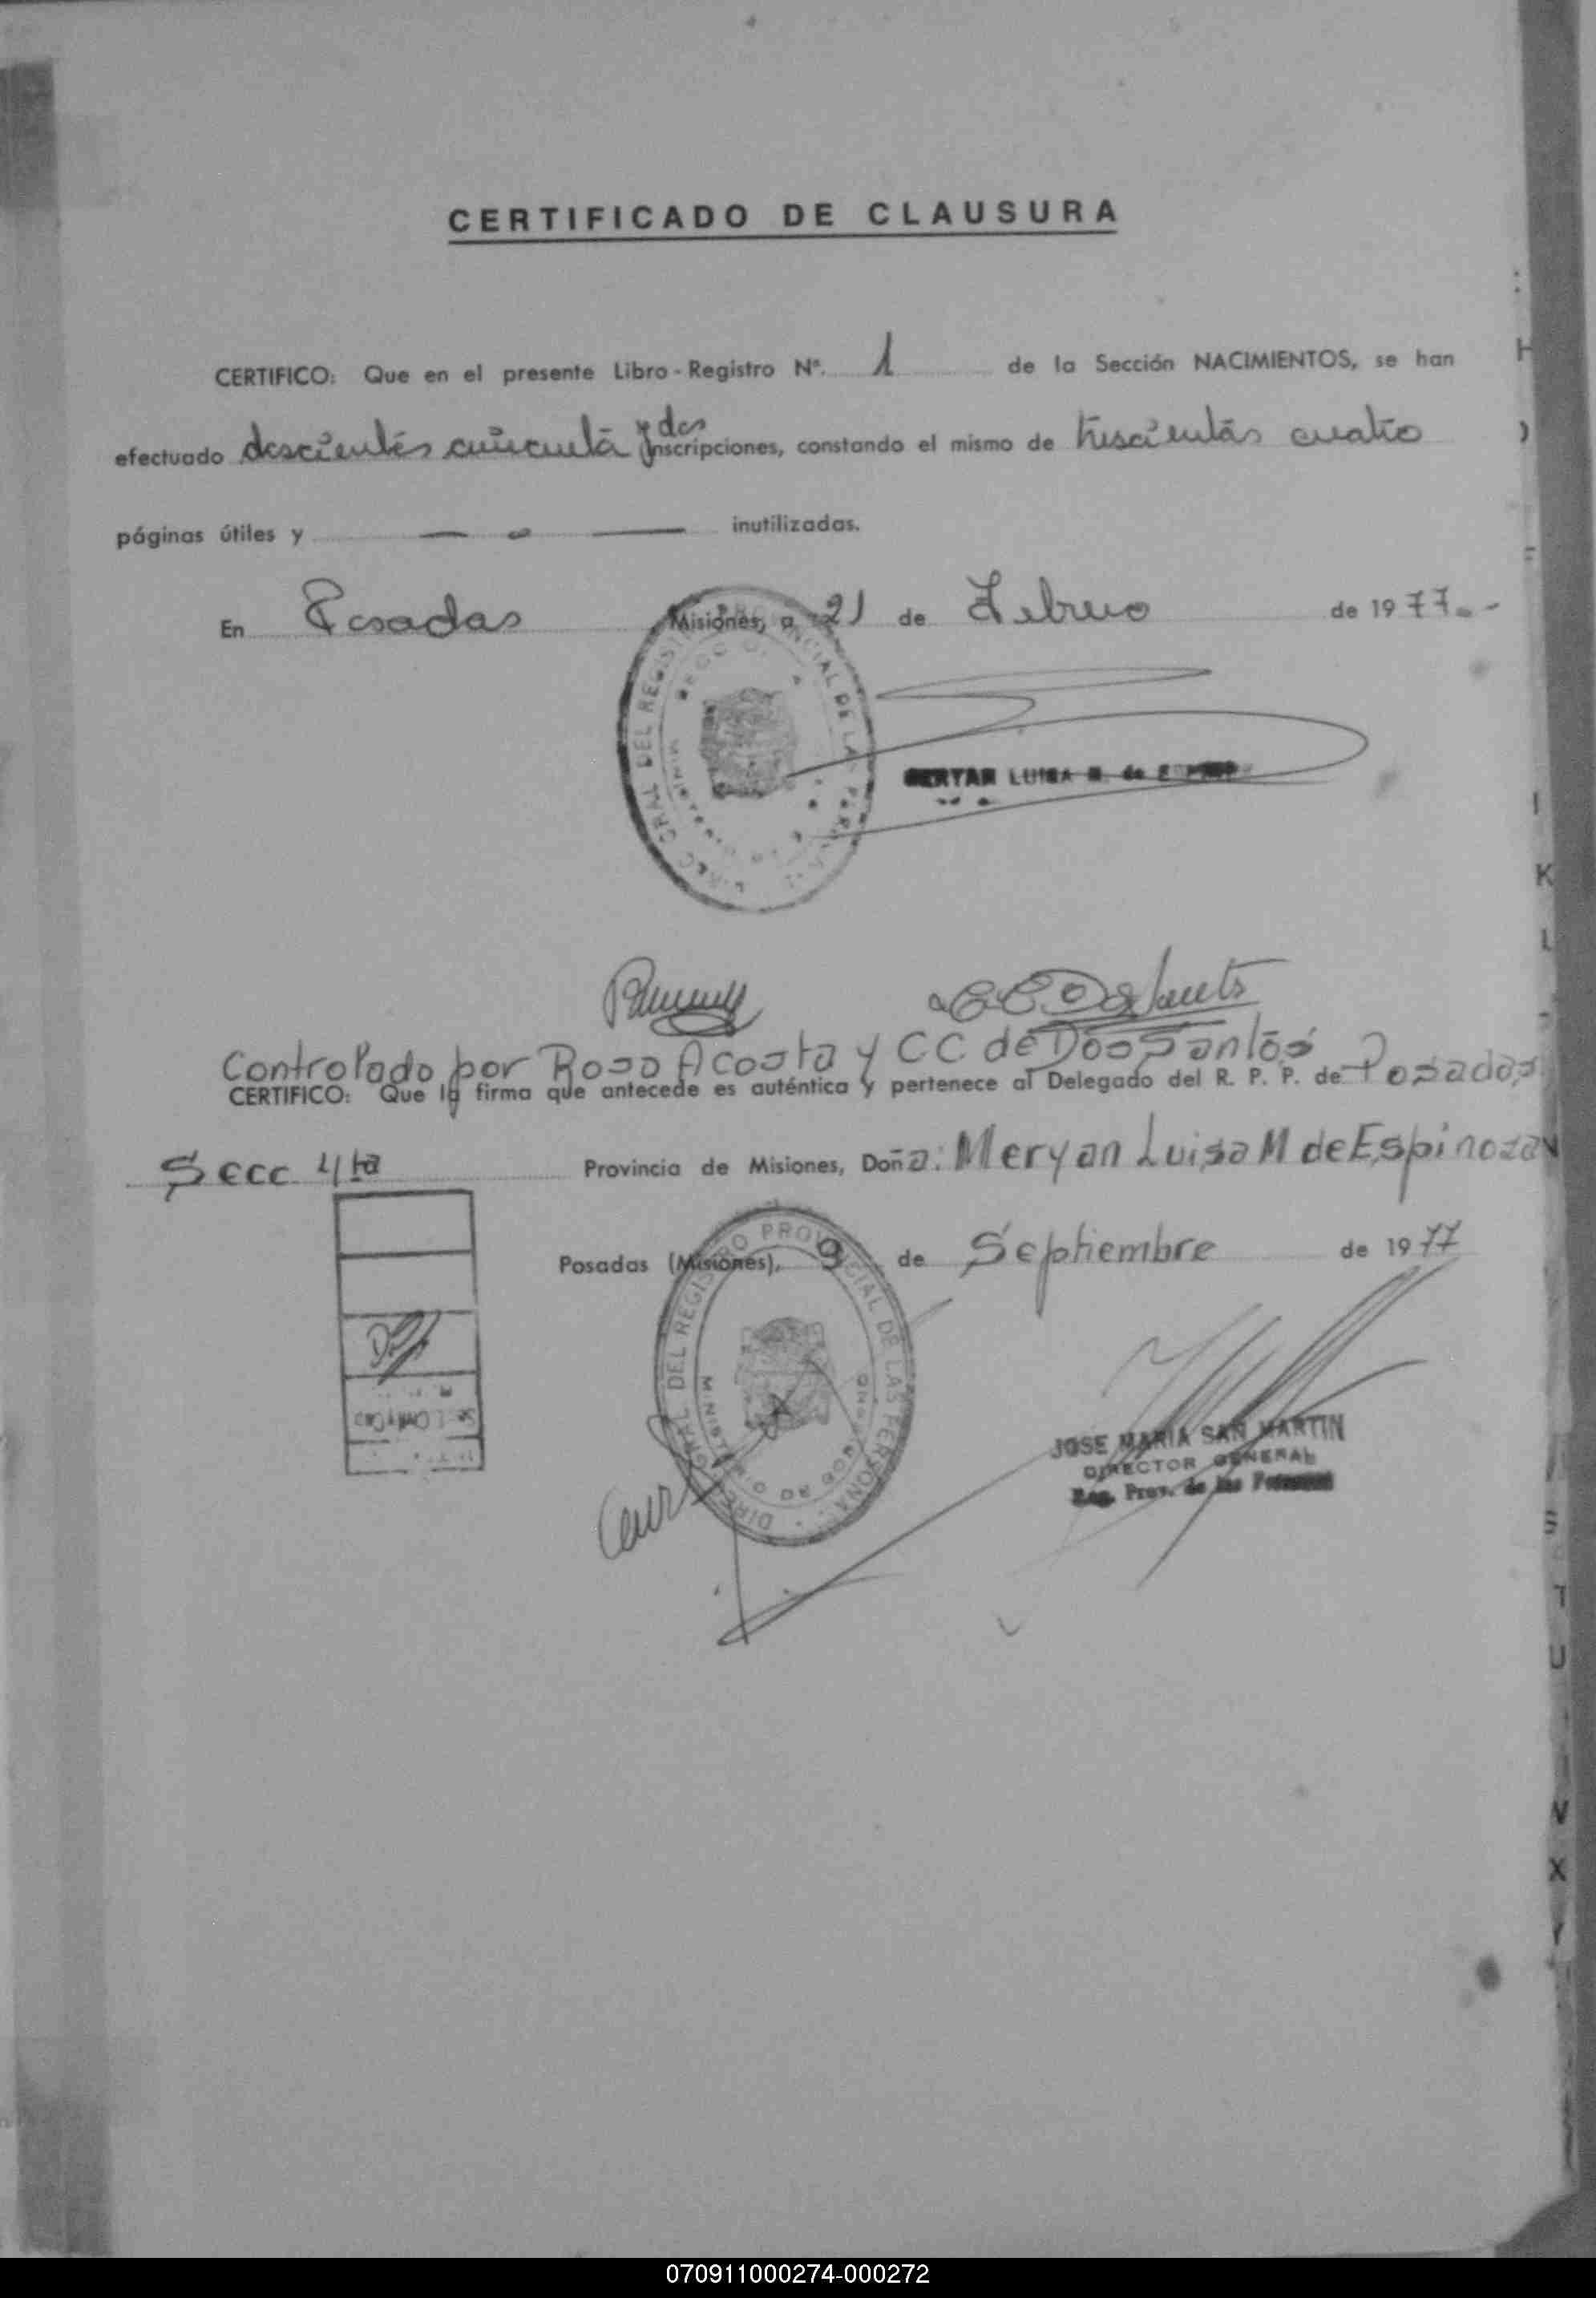 CERTIFICADO DE CLAUSURA
CERTIFICO: Que en el presente Libro-Registro Nº. 1 de la Sección NACIMIENTOS, se han
y dos
efectuado doscientos cincuenta inscripciones, constando el mismo de trescientas cuatro
páginas útiles y — o — inutilizadas.
En Posadas Misiones, a 21 de Febrero de 1977.-
MERYAN LUISA M. de
Controlado por Rosa Acosta y CC de Dos Santos
CERTIFICO: Que la firma que antecede es auténtica y pertenece al Delegado del R. P. P. de Posadas
Secc 4ta Provincia de Misiones, Doña: Meryan Luisa M de Espinoza
Posadas (Misiones), 9 de Septiembre de 1977
DIREC. GRAL. DEL REGISTRO PROVINCIAL DE LAS PERSONAS
MINISTERIO DE GOBIERNO
JOSE MARIA SAN MARTIN
DIRECTOR GENERAL
Reg. Prov. de las Personas
H
I
K
L
S
T
U
V
X
Y
070911000274-000272